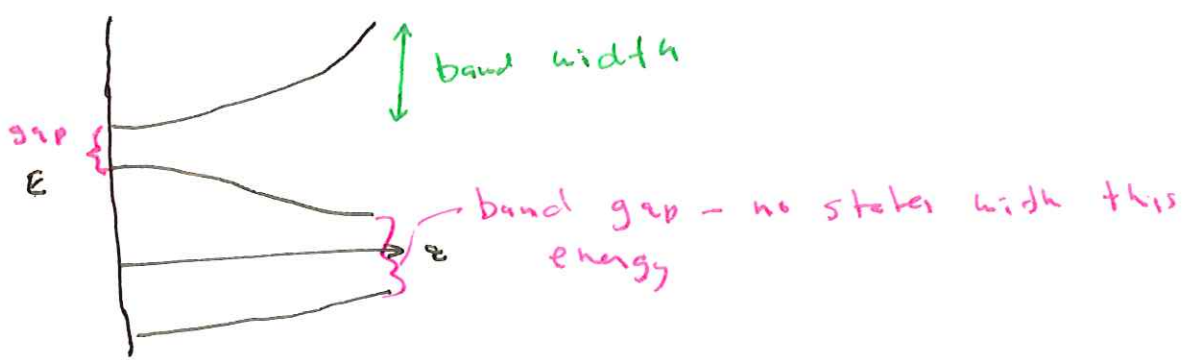 band width
gap
E
band gap - no states with this
energy